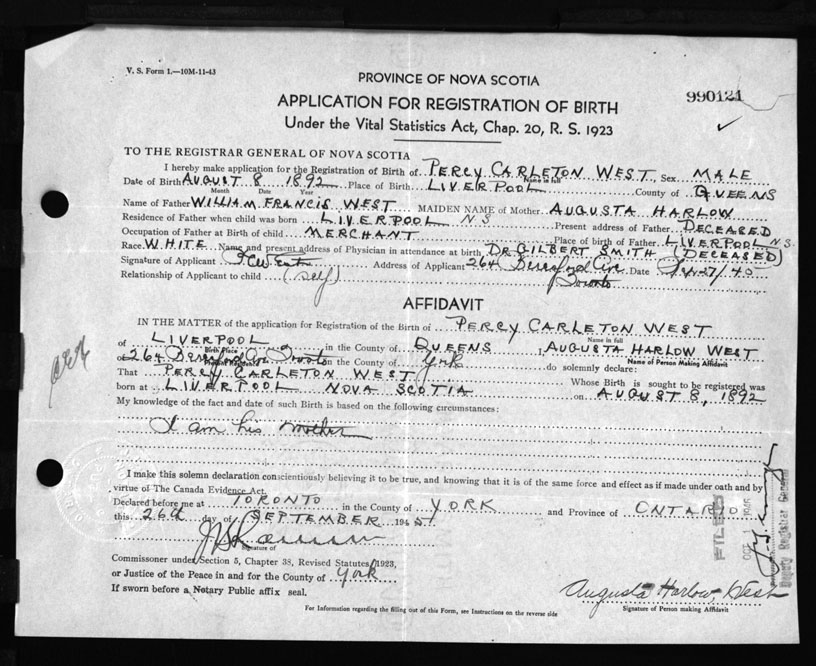 V. S. Form 1.—10M-11-43
PROVINCE OF NOVA SCOTIA
990121
APPLICATION FOR REGISTRATION OF BIRTH
Under the Vital Statistics Act, Chap. 20, R. S. 1923
TO THE REGISTRAR GENERAL OF NOVA SCOTIA
I hereby make application for the Registration of Birth of PERCY CARLETON WEST Sex MALE
Name in full
Date of Birth AUGUST 8 1892 Place of Birth LIVERPOOL County of QUEENS
Month Date Year
Name of Father WILLIAM FRANCIS WEST MAIDEN NAME of Mother AUGUSTA HARLOW
Residence of Father when child was born LIVERPOOL N S Present address of Father DECEASED
Occupation of Father at Birth of child MERCHANT Place of birth of Father LIVERPOOL N.S.
Race WHITE Name and present address of Physician in attendance at birth DR GILBERT SMITH (DECEASED)
Signature of Applicant Address of Applicant 264 Beresford Ave Date 27/45
Relationship of Applicant to child (self) Toronto
AFFIDAVIT
IN THE MATTER of the application for Registration of the Birth of PERCY CARLETON WEST
Name in full
of LIVERPOOL in the County of QUEENS I, AUGUSTA HARLOW WEST
Birth Place Name of Person Making Affidavit
of 264 Beresford Av Toronto in the County of York do solemnly declare:
Present Residence
That PERCY CARLETON WEST Whose Birth is sought to be registered was
born at LIVERPOOL NOVA SCOTIA on AUGUST 8, 1892
My knowledge of the fact and date of such Birth is based on the following circumstances:
I am his mother
I make this solemn declaration conscientiously believing it to be true, and knowing that it is of the same force and effect as if made under oath and by
virtue of The Canada Evidence Act.
Declared before me at TORONTO in the County of YORK and Province of ONTARIO
this 26th day of SEPTEMBER 1945
Signature of
Commissioner under Section 5, Chapter 38, Revised Statutes 1923,
or Justice of the Peace in and for the County of York
If sworn before a Notary Public affix seal.
Augusta Harlow West
Signature of Person making Affidavit
For Information regarding the filling out of this Form, see Instructions on the reverse side
FILED
OCT
Deputy Registrar General